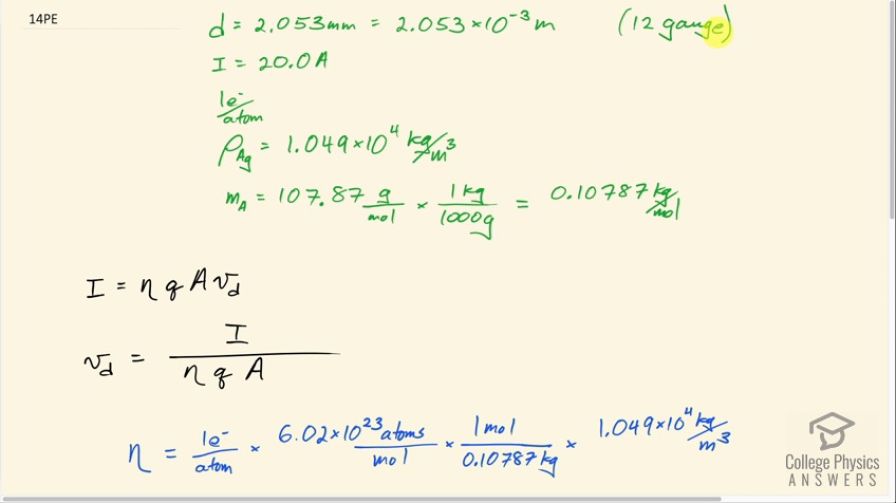 14PE
d = 2.053 mm = 2.053 × 10⁻³ m (12 gauge)
I = 20.0 A
1e⁻/atom
ρ_Ag = 1.049 × 10⁴ kg/m³
m_A = 107.87 g/mol × 1kg/1000g = 0.10787 kg/mol
I = n q A v_d
v_d = I / n q A
n = 1e⁻/atom × 6.02 × 10²³ atoms/mol × 1 mol/0.10787 kg × 1.049 × 10⁴ kg/m³
College Physics
ANSWERS